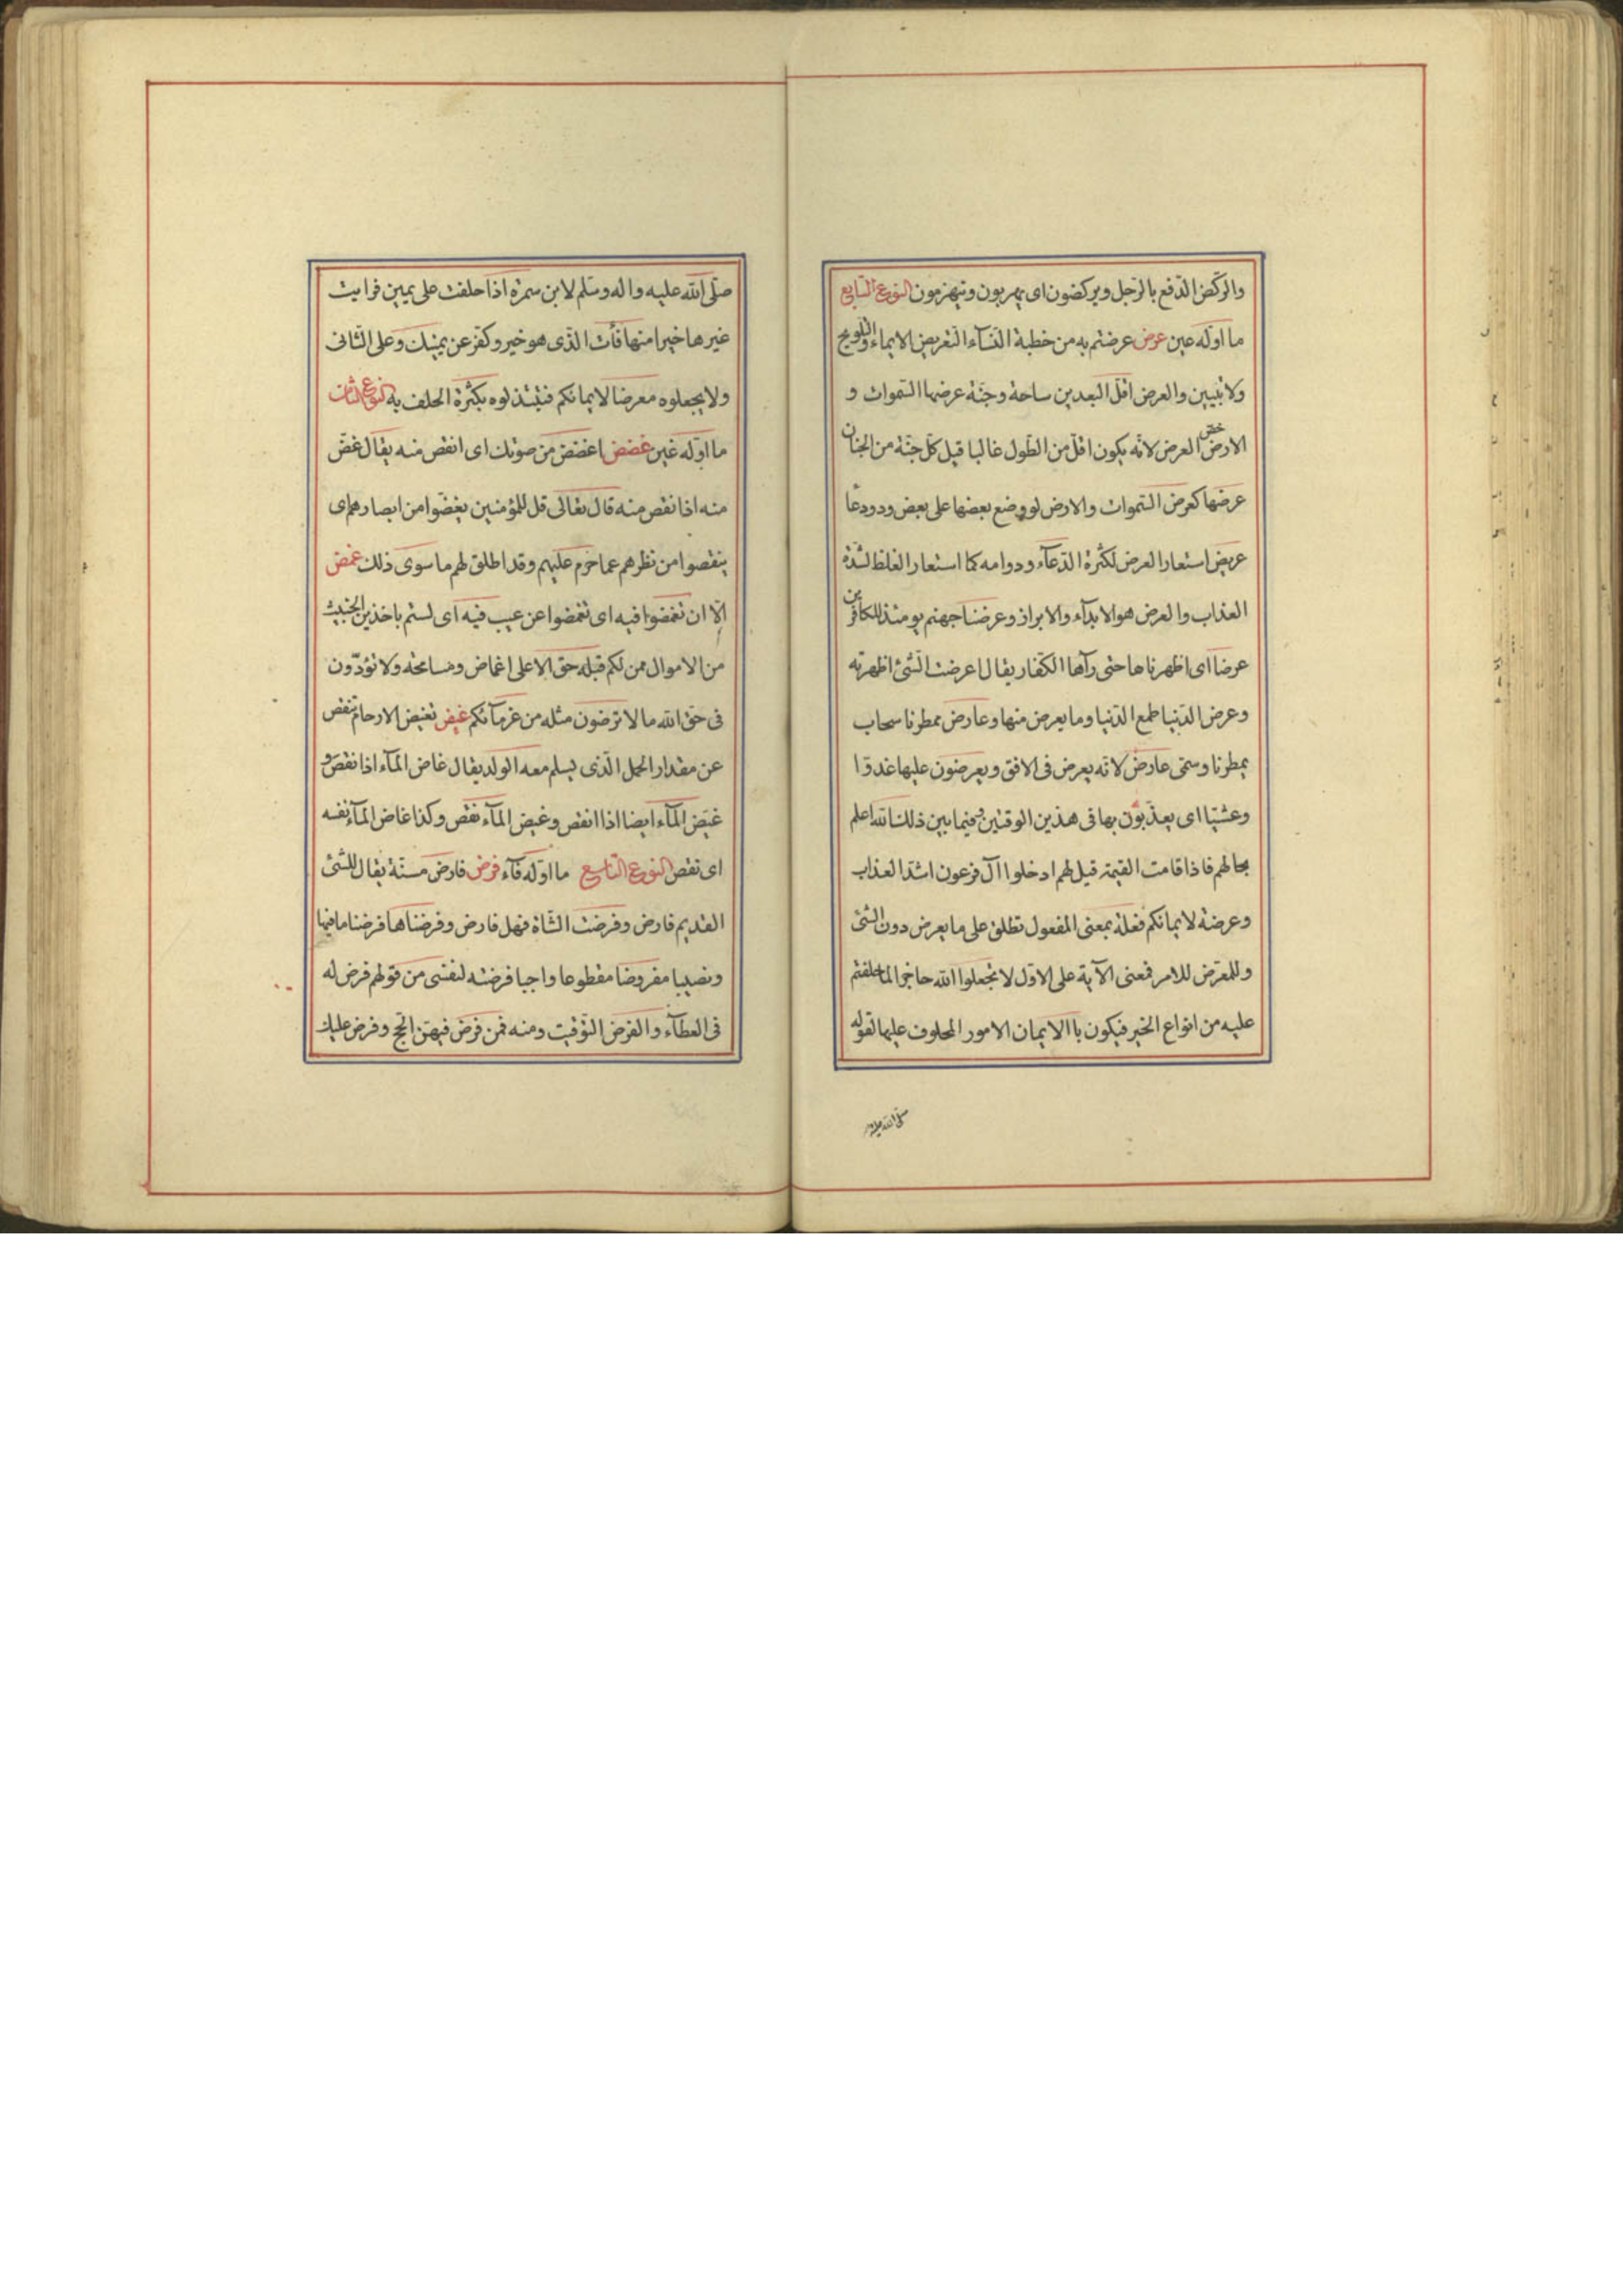 والركض الدفع بالرجل ويركضون اى يهربون وينهزمون النوع السابع
ما اوله عين عرض عرضتم به من خطبة النسآء التعريض الايماء والتلويح
ولا تبيين والعرض اقل البعدين ساحة وجنة عرضها السموات و
الارض خص العرض لانه يكون اقل من الطول غالبا قيل كل جنة من الجنان
عرضها كعرض السموات والارض لو وضع بعضها على بعض ودو دعا
عريض استعار العرض لكثرة الدعآء ودوامه كما استعار الغلظ لشدة
العذاب والعرض هو الابدآء والابراز وعرضنا جهنم يومئذ للكافرين
عرضا اى اظهرناها حتى رآها الكفار يقال اعرضت الشئ اظهرته
وعرض الدنيا طمع الدنيا وما يعرض منها وعارض ممطرنا سحاب
يمطرنا وسمى عارض لانه يعرض فى الافق ويعرضون عليها غدوّا
وعشيّا اى يعذّبون بها فى هذين الوقتين وفيما بين ذلك الله اعلم
بحالهم فاذا قامت القيمة قيل لهم ادخلوا آل فرعون اشد العذاب
وعرضة لايمانكم فعلة بمعنى المفعول تطلق على ما يعرض دون الشئ
وللمعرض للامر فمعنى الآية على الاول لا تجعلوا الله حاجزا لما حلفتم
عليه من انواع الخير فيكون باالايمان الامور المحلوف عليها لقوله
صلى الله عليه و
صلّى الله عليه واله وسلّم لابن سمرة اذا حلفت على يمين فرايت
غيرها خيرا منها فأت الّذى هو خير وكفّر عن يمينك وعلى الثانى
ولا يجعلوه معرضا لايمانكم فتبتذلوه بكثرة الحلف به النوع الثامن
ما اوله غين غضض اغضض من صوتك اى انقص منه يقال غضّ
منه اذا نقص منه قال تعالى قل للمؤمنين يغضّوا من ابصارهم اى
ينقصوا من نظرهم عما حرم عليهم وقد اطلق لهم ما سوى ذلك غمض
الّا ان تغمضوا فيه اى تغمضوا عن عيب فيه اى لستم باخذين الخبيث
من الاموال ممن لكم قبله حق الا على اغماض ومسامحة ولا تؤدّون
فى حق الله ما لا ترضون مثله من غرمآئكم غيض تغيض الارحام تنقص
عن مقدار الحمل الّذى يسلم معه الولد يقال غاض المآء اذا نقص و
غيّض المآء ايضا اذا انقص وغيض المآء نقص وكذا غاض المآء نفسه
اى نقص النوع التاسع ما اوله فآء فرض فارض مسنّة يقال للشئ
القديم فارض وفرضت الشّاة فهل فارض وفرضناها فرضنا ما فيها
ونصيبا مفروضا مقطوعا واجبا فرضته لنفسى من قولهم فرض له
فى العطآء والفرض التّوقيت ومنه فمن فرض فيهنّ الحج وفرض عليك